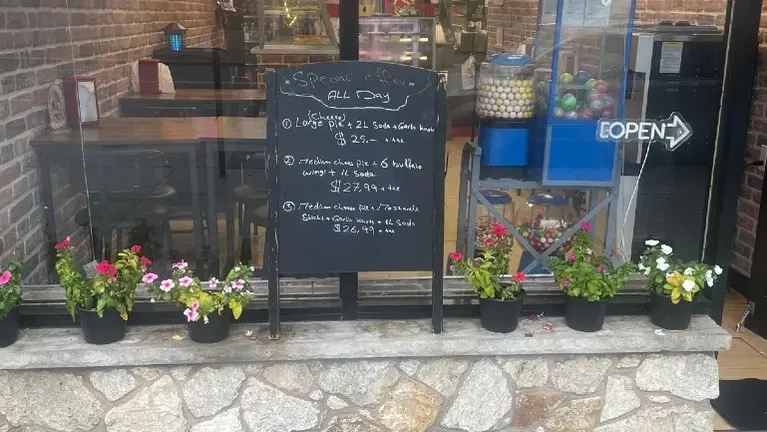 Special offer
ALL Day
(Cheese)
① Large pie + 2L Soda + Garlic knots
$ 25,- + tax
② medium chees pie + 6 buffalo
wings + 1L Soda
$27,99 + tax
③ Medium cheese pie + Mozzarela
Sticks + Garlic knots + 1L Soda
$26,99 + tax
OPEN